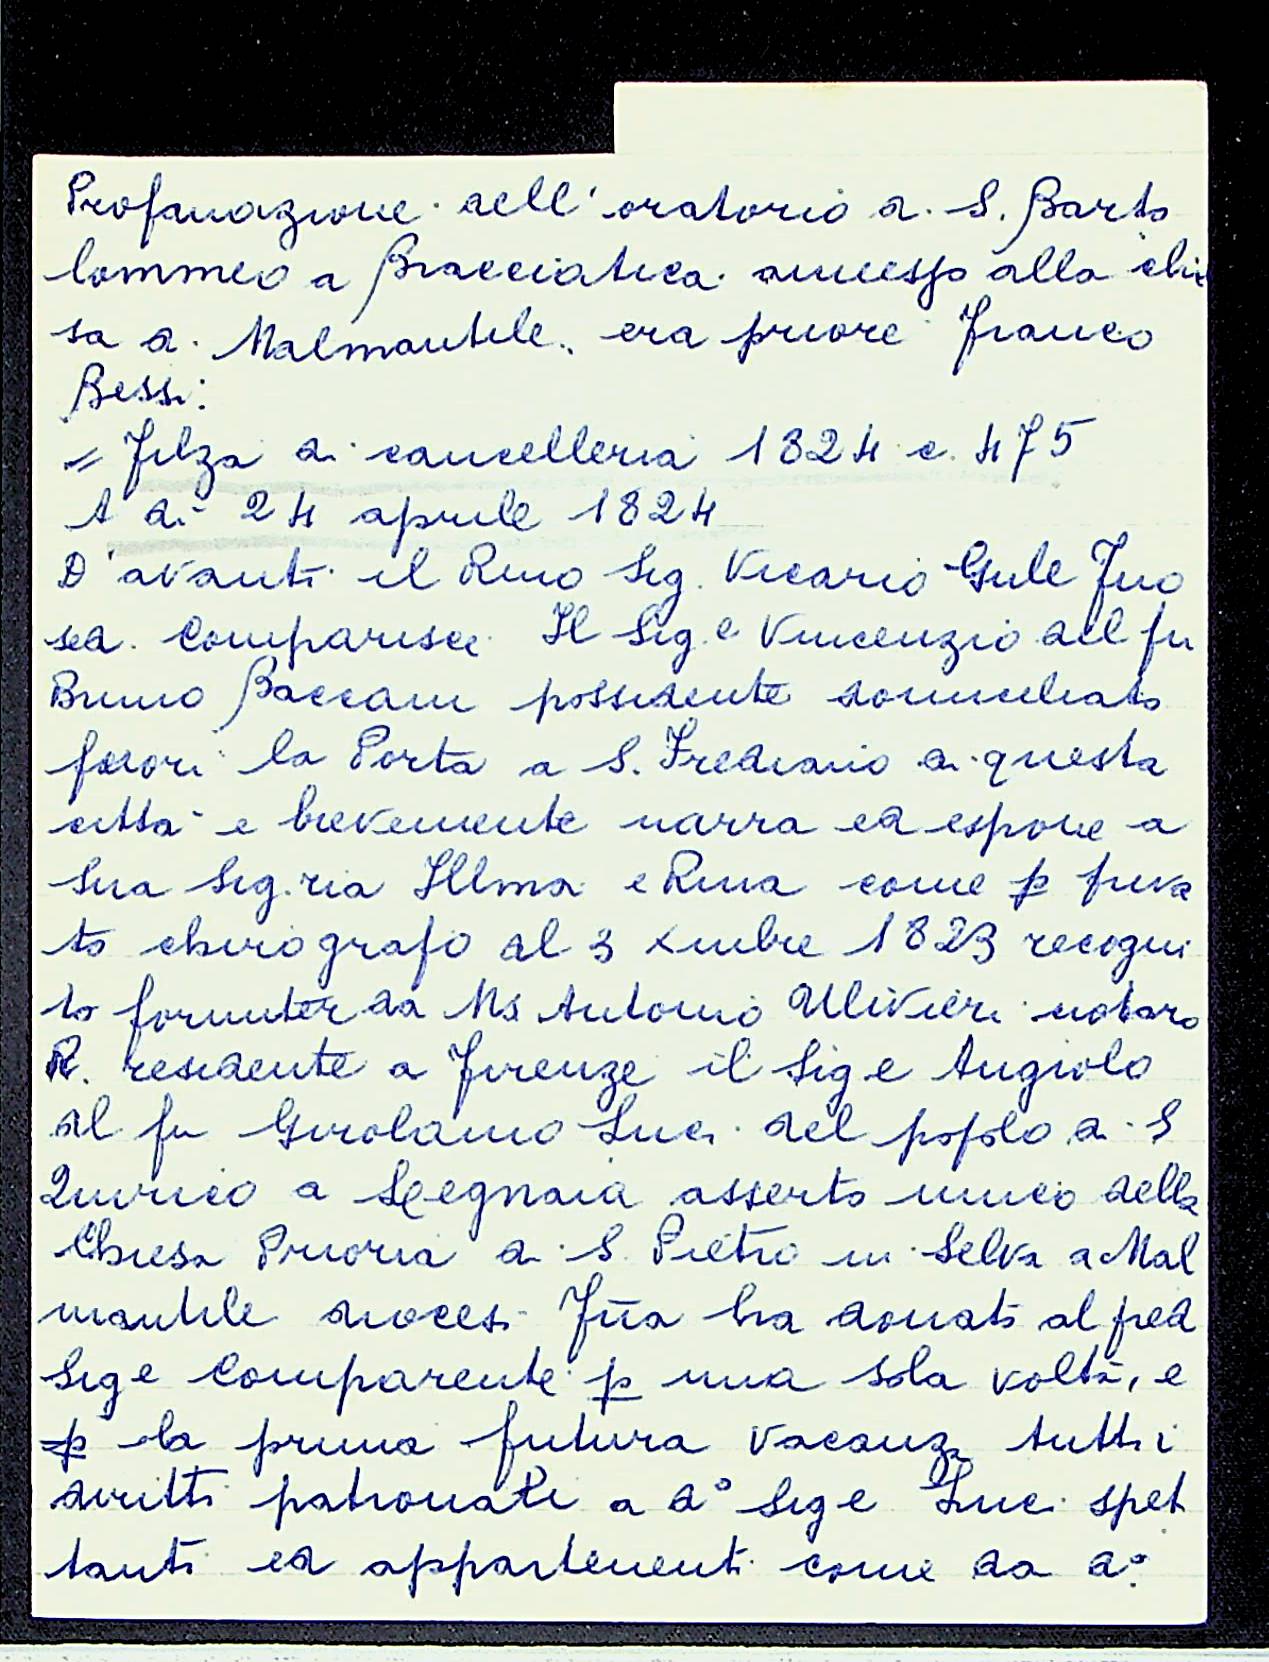 Profanazione dell'oratorio di S. Barto
lommeo a Bracciatica annesso alla chie
sa di Malmantile. era priore Franco
Bessi:
= Filza di cancelleria 1824 c. 475
A di 24 aprile 1824
D'avanti il Rmo Sig. Vicario Gnle Fno
sed. Comparisce Il Sig.e Vincenzio del fu
Bruno Baccani possidente domiciliato
fuori la Porta a S. Frediano di questa
città e brevemente narra ed espone a
Sua Sig.ria Illma e Rma come p priva
to chirografo del 3 Xmbre 1823 recogni
to formiter da Ms Antonio Ulivieri notaro
R. residente a Firenze il Sige Angiolo
del fu Girolamo Luci del popolo di S
Quirico a Legnaia asserto unico della
Chiesa Prioria di S. Pietro in Selva a Mal
mantile diocesi Fna ha donati al pred
Sige Comparente p una sola volta, e
p la prima futura vacanza tutti i
diritti patronati a do Sige Luci spet
tanti ed appartenenti come da do